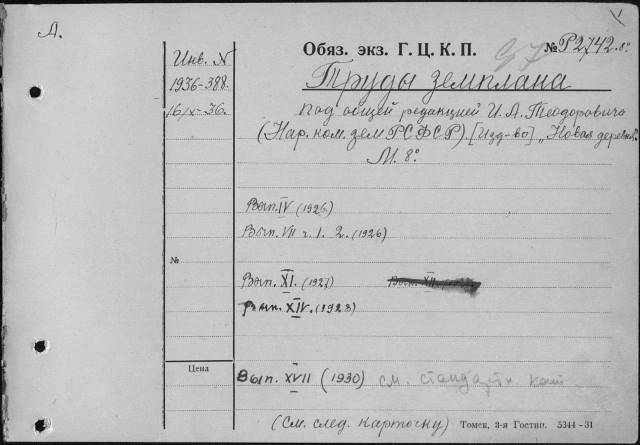 А.
Инв. N
1936-388.
16/IX-36.
Обяз. экз. Г. Ц. К. П.
97 № Р2742.8°
Труды земплана
Под общей редакцией И. А. Теодоровича
(Нар. ком. зем РСФСР) [Изд-во] „Новая деревня"
М. 8°.
Вып. IV (1926)
Вып. VII ч. 1. 2. (1926)
№
Вып. XI. (1927) Вып. XII
Вып. XIV. (1928)
Цена
Вып. XVII (1930) см. стандартн. кат
(См. след. карточку)
Томск, 3-я Гостип. 5344-31